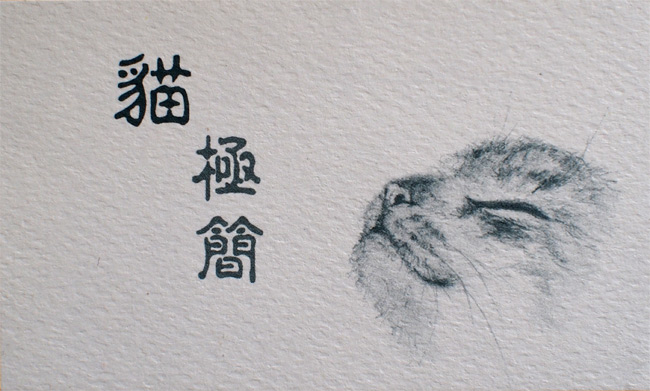 貓
極簡